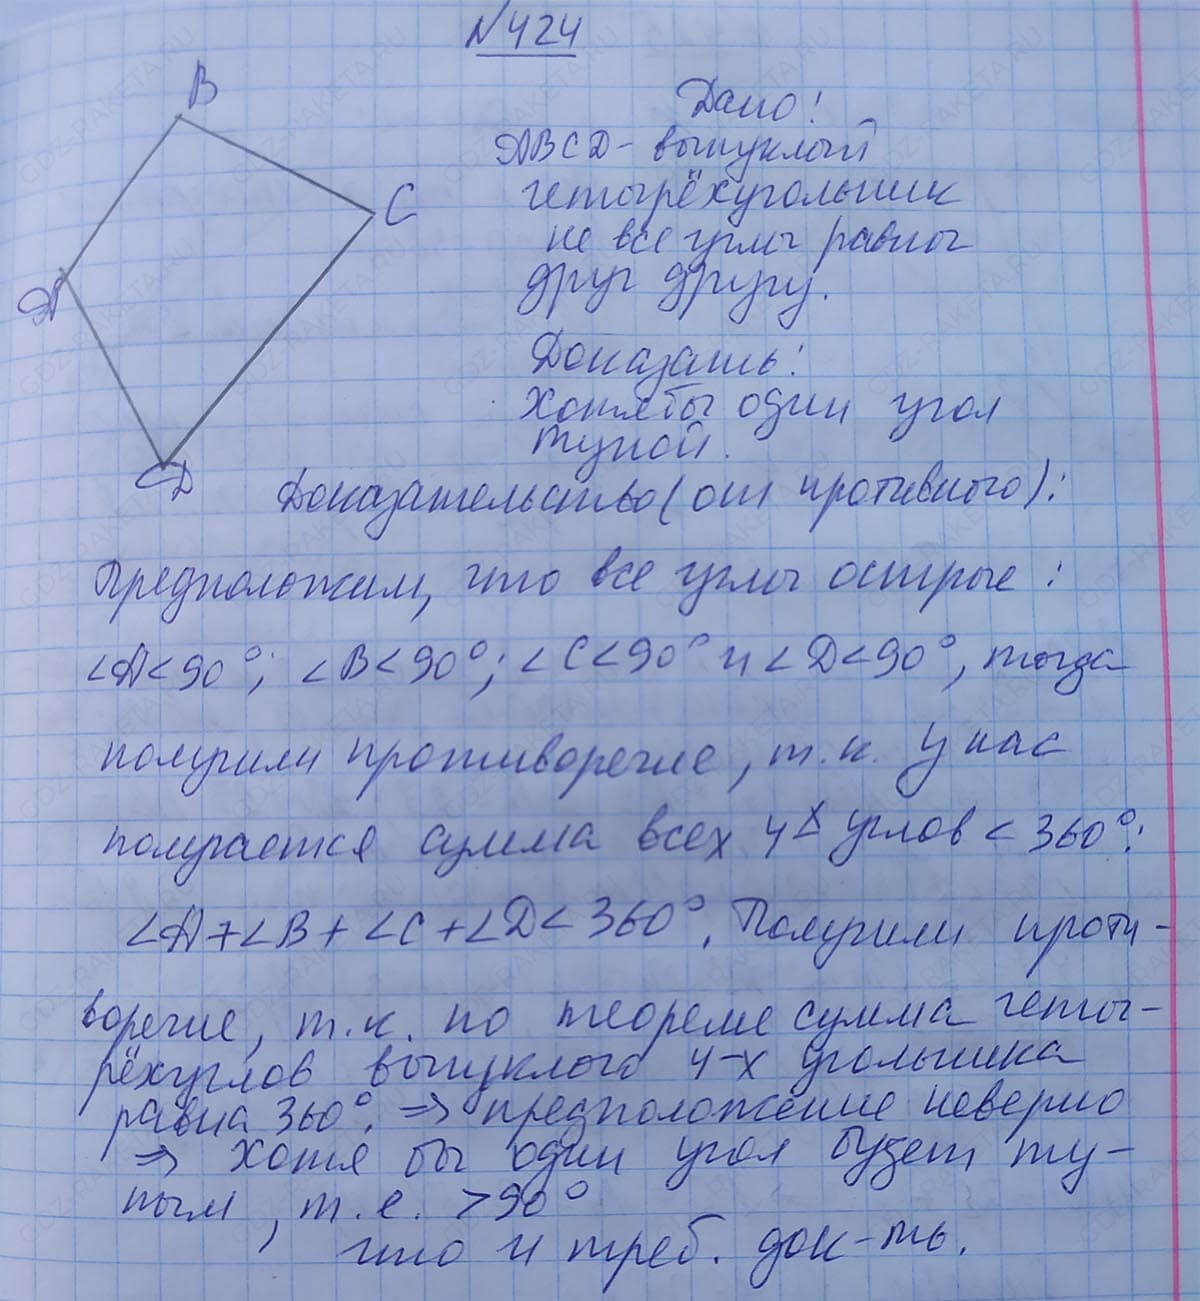 №424
B
C
A
D
Дано:
ABCD - выпуклый
четырёхугольник
не все углы равны
друг другу.
Доказать:
Хотя бы один угол
тупой.
Доказательство (от противного):
Предположим, что все углы острые:
∠A<90°; ∠B<90°; ∠C<90° и ∠D<90°, тогда
получили противоречие, т.к. у нас
получается сумма всех 4х углов < 360°:
∠A+∠B+∠C+∠D<360°. Получили проти-
воречие, т.к. по теореме сумма четы-
рёхуглов выпуклого 4-х угольника
равна 360°. ⇒ предположение неверно
⇒ хотя бы один угол будет ту-
пым, т.е. >90°
что и треб. док-ть.
GDZ-RAKETA.RU